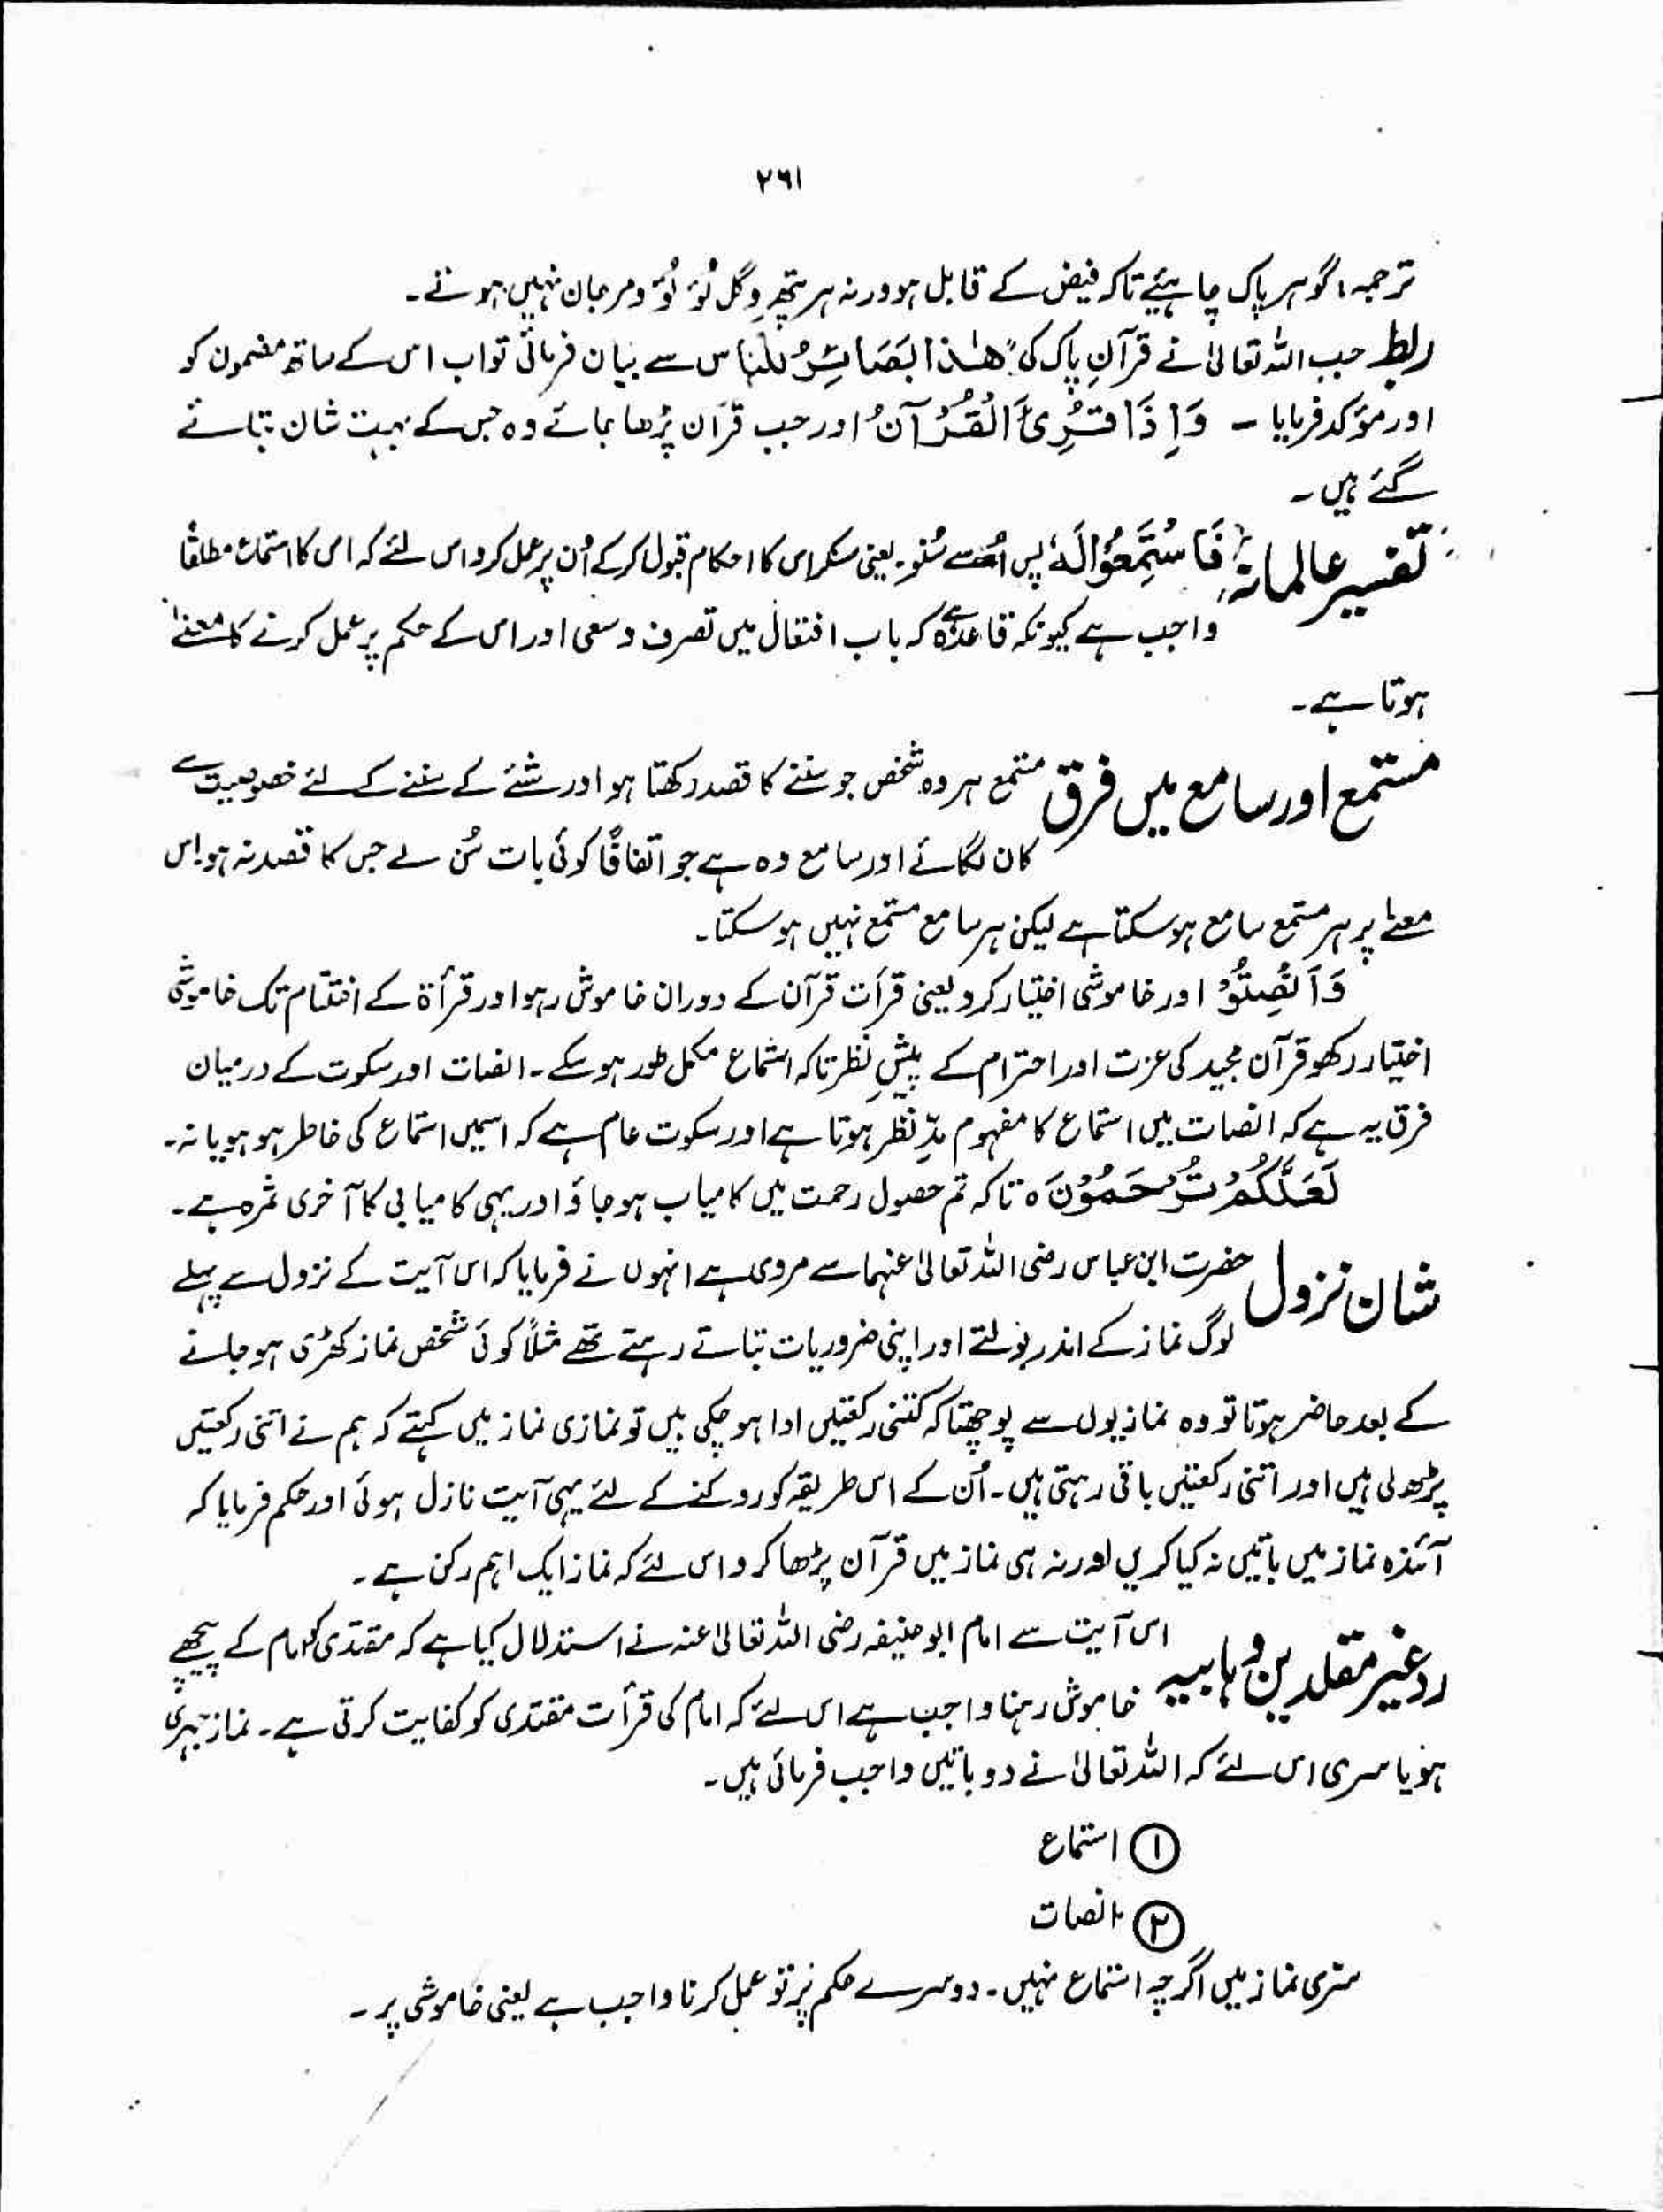 ۲۶۱
ترجمہ: گوہر پاک چاہیئے تاکہ فیض کے قابل ہو ورنہ ہر پتھر و گل لُؤ لُؤ و مرجان نہیں ہوتے۔
ربط جب اللہ تعالیٰ نے قرآنِ پاک کی ”ھٰذا بَصَائِرُ للناس سے بیان فرمائی تو اب اس کے ساتھ مضمون کو
اور مؤکد فرمایا ۔ وَاِذَا قُرِئَ الْقُرْآنُ اور جب قرآن پڑھا جائے وہ جس کے بہت شان بتائے
گئے ہیں۔
تفسیر عالمانہ فَاسْتَمِعُوْا لَهٗ پس اُسے سُنو۔ یعنی سنکر اس کا احکام قبول کر کے اُن پر عمل کرو اس لئے کہ اس کا استماع مطلقًا
واجب ہے کیونکہ قاعدہ ہے کہ باب افتعال میں تصرف و سعی اور اس کے حکم پر عمل کرنے کا معنےٰ
ہوتا ہے۔
مستمع اور سامع میں فرق مستمع ہر وہ شخص جو سننے کا قصد رکھتا ہو اور شئے کے سننے کے لئے خصوصیت سے
کان لگائے اور سامع وہ ہے جو اتفاقًا کوئی بات سُن لے جس کا قصد نہ ہو اس
معنےٰ پر ہر مستمع سامع ہو سکتا ہے لیکن ہر سامع مستمع نہیں ہو سکتا۔
وَاَنْصِتُوْ اور خاموشی اختیار کرو یعنی قرأت قرآن کے دوران خاموش رہو اور قرأۃ کے اختتام تک خاموشی
اختیار رکھو قرآن مجید کی عزت اور احترام کے پیشِ نظر تاکہ استماع مکمل طور ہو سکے۔ انصات اور سکوت کے درمیان
فرق یہ ہے کہ انصات میں استماع کا مفہوم مدِّ نظر ہوتا ہے اور سکوت عام ہے کہ اسمیں استماع کی خاطر ہو ہو یا نہ۔
لَعَلَّكُمْ تُرْحَمُوْنَ ہ تاکہ تم حصول رحمت میں کامیاب ہو جاؤ اور یہی کامیابی کا آخری ثمرہ ہے۔
شان نزول حضرت ابن عباس رضی اللہ تعالیٰ عنہما سے مروی ہے انہوں نے فرمایا کہ اس آیت کے نزول سے پہلے
لوگ نماز کے اندر بولتے اور اپنی ضروریات بتاتے رہتے تھے مثلاً کوئی شخص نماز کھڑی ہو جانے
کے بعد حاضر ہوتا تو وہ نمازیوں سے پوچھتا کہ کتنی رکعتیں ادا ہو چکی ہیں تو نمازی نماز میں کہتے کہ ہم نے اتنی رکعتیں
پڑھ لی ہیں اور اتنی رکعتیں باقی رہتی ہیں۔ اُن کے اس طریقہ کو روکنے کے لئے یہی آیت نازل ہوئی اور حکم فرمایا کہ
آئندہ نماز میں باتیں نہ کیا کریں اور نہ ہی نماز میں قرآن پڑھا کرو اس لئے کہ نماز ایک اہم رکن ہے۔
رد غیر مقلدین وہابیہ اس آیت سے امام ابو حنیفہ رضی اللہ تعالیٰ عنہ نے استدلال کیا ہے کہ مقتدی کو امام کے پیچھے
خاموش رہنا واجب ہے اس لئے کہ امام کی قرأت مقتدی کو کفایت کرتی ہے۔ نماز جہری
ہو یا سری اس لئے کہ اللہ تعالیٰ نے دو باتیں واجب فرمائی ہیں۔
① استماع
② انصات
سری نماز میں اگرچہ استماع نہیں۔ دوسرے حکم پر تو عمل کرنا واجب ہے یعنی خاموشی پر۔